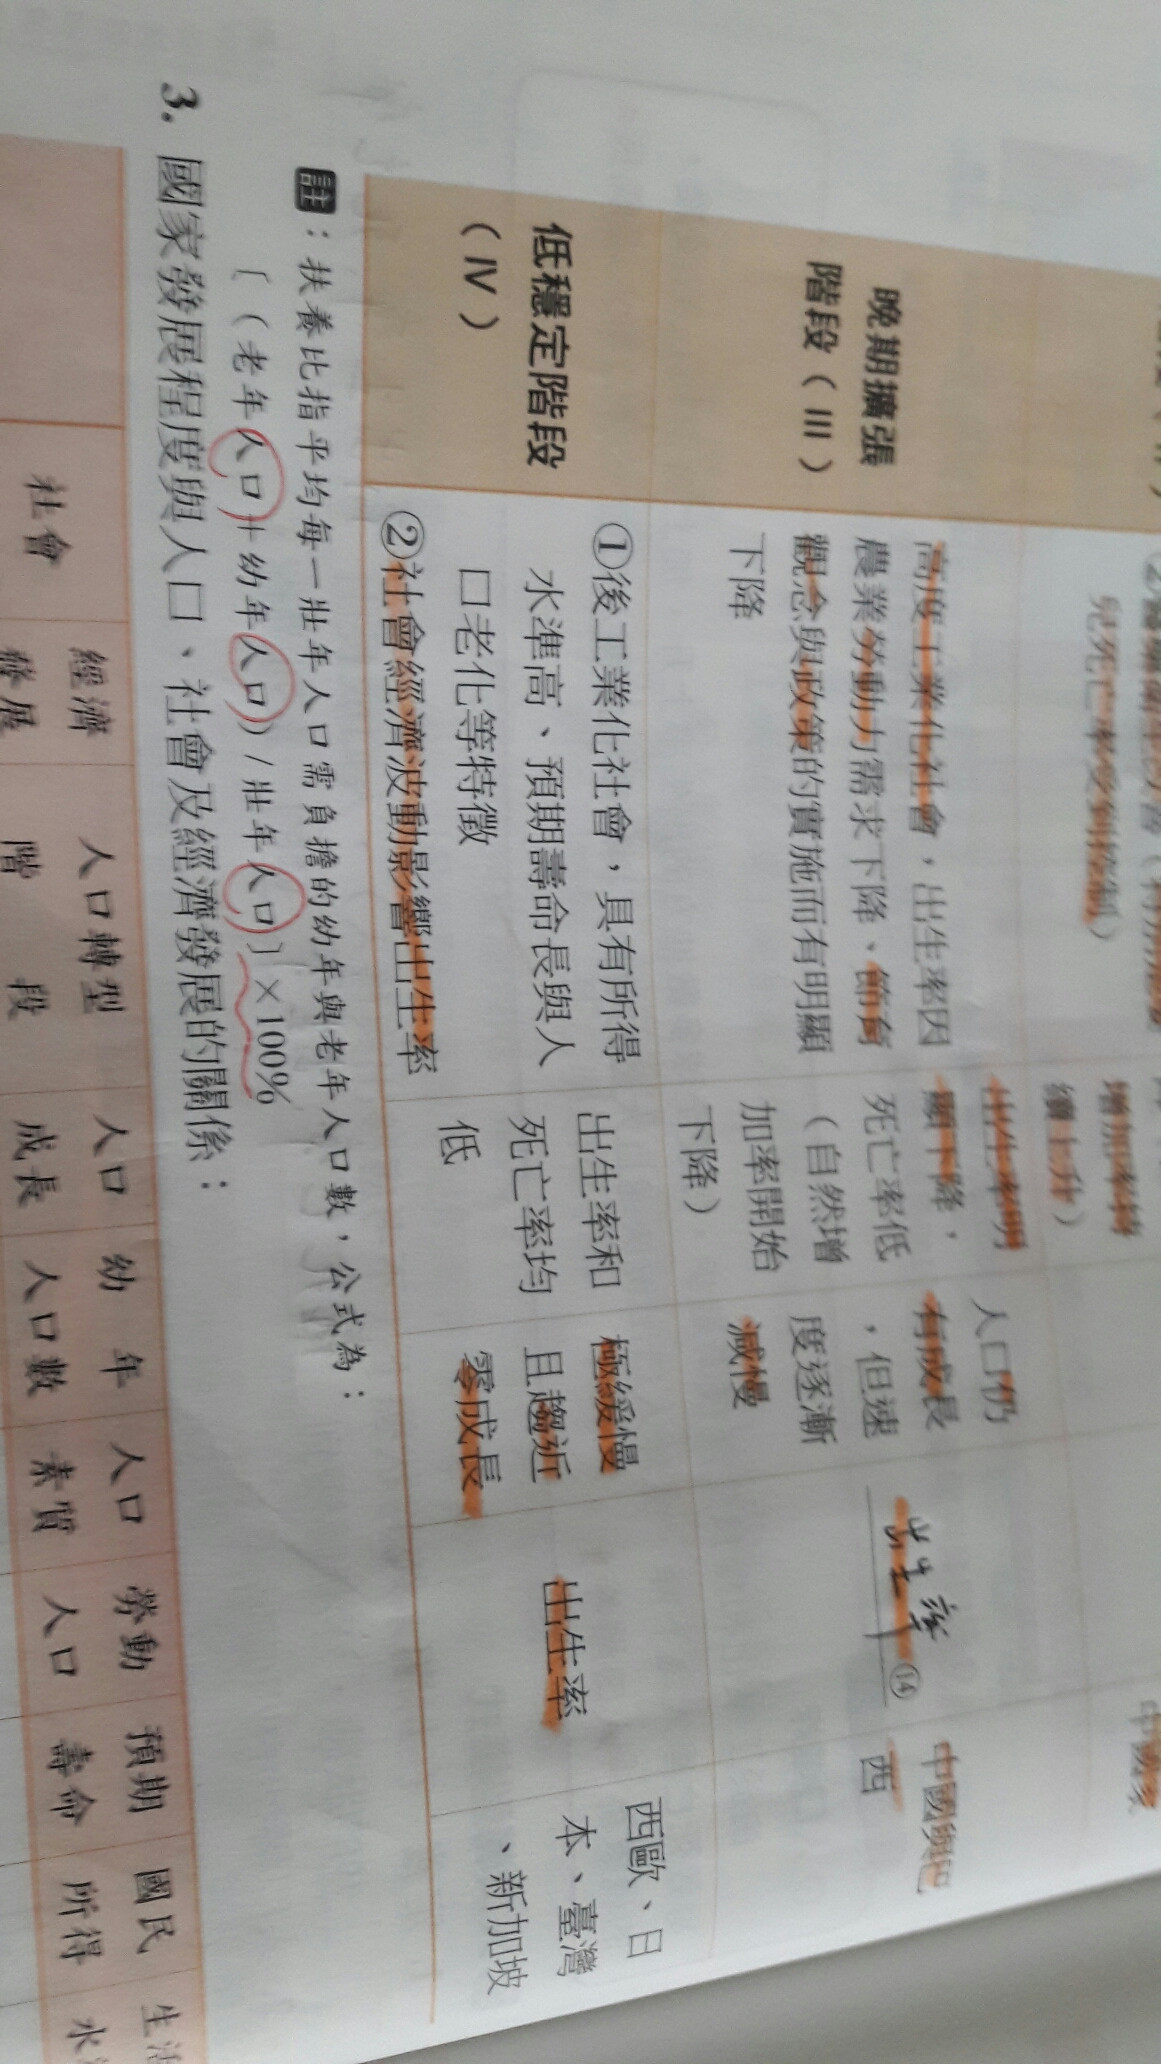 兒死亡率受到控制）
增加率持
續上升）
晚期擴張
階段（III）
高度工業化社會，出生率因
農業勞動力需求下降、節育
觀念與政策的實施而有明顯
下降
出生率明
顯下降，
死亡率低
（自然增
加率開始
下降）
人口仍
有成長
，但速
度逐漸
減慢
出生率⑭
中國與巴
西
低穩定階段
（IV）
①後工業化社會，具有所得
水準高、預期壽命長與人
口老化等特徵
②社會經濟波動影響出生率
出生率和
死亡率均
低
極緩慢
且趨近
零成長
出生率
西歐、日
本、臺灣
、新加坡
註：扶養比指平均每一壯年人口需負擔的幼年與老年人口數，公式為：
〔（老年人口＋幼年人口）/壯年人口〕×100%
3. 國家發展程度與人口、社會及經濟發展的關係：
社會
經濟
發展
人口轉型
階段
人口
成長
幼年
人口數
人口
素質
勞動
人口
預期
壽命
國民
所得
生活
水